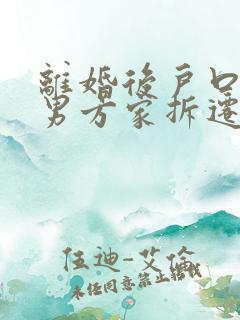 離婚後戶口
男方家拆遷
伍迪-艾倫
未任同意禁止轉載